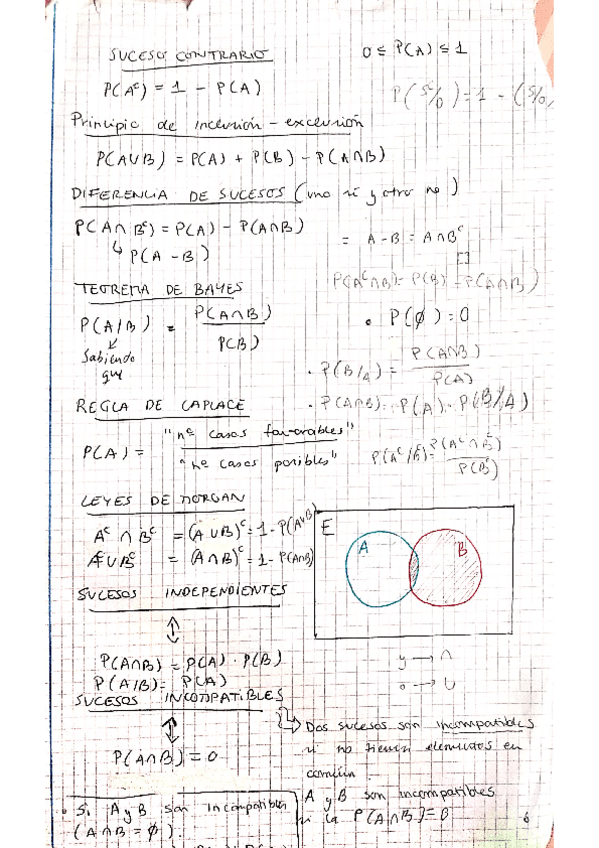 SUCESO CONTRARIO
0 ≤ P(A) ≤ 1
P(Aᶜ) = 1 - P(A)
P(S/O) = 1 - (S/O,
Principio de inclusión-exclusión
P(A∪B) = P(A) + P(B) - P(A∩B)
DIFERENCIA DE SUCESOS (uno si y otro no)
P(A∩Bᶜ) = P(A) - P(A∩B)
= A-B = A∩Bᶜ
↳ P(A-B)
P(Aᶜ∩B) = P(B) - P(A∩B)
TEOREMA DE BAYES
P(A/B) = P(A∩B)
P(B)
• P(∅) = 0
Sabiendo
que
• P(B/A) = P(A∩B)
P(A)
REGLA DE LAPLACE
• P(A∩B) = P(A) · P(B/A)
P(A) = "nº casos favorables"
"nº casos posibles"
P(Aᶜ/Bᶜ) = P(Aᶜ∩Bᶜ)
P(Bᶜ)
LEYES DE MORGAN
Aᶜ ∩ Bᶜ = (A∪B)ᶜ = 1 - P(A∪B)
Aᶜ∪Bᶜ = (A∩B)ᶜ = 1 - P(A∩B)
E
A
B
SUCESOS INDEPENDIENTES
P(A∩B) = P(A) · P(B)
P(A/B) = P(A)
y → ∩
o → ∪
SUCESOS INCOMPATIBLES
P(A∩B) = 0
Dos sucesos son incompatibles
si no tienen elementos en
común
A y B son incompatibles
si la P(A∩B) = 0
• Si A y B son incompatibles
(A∩B = ∅).
6